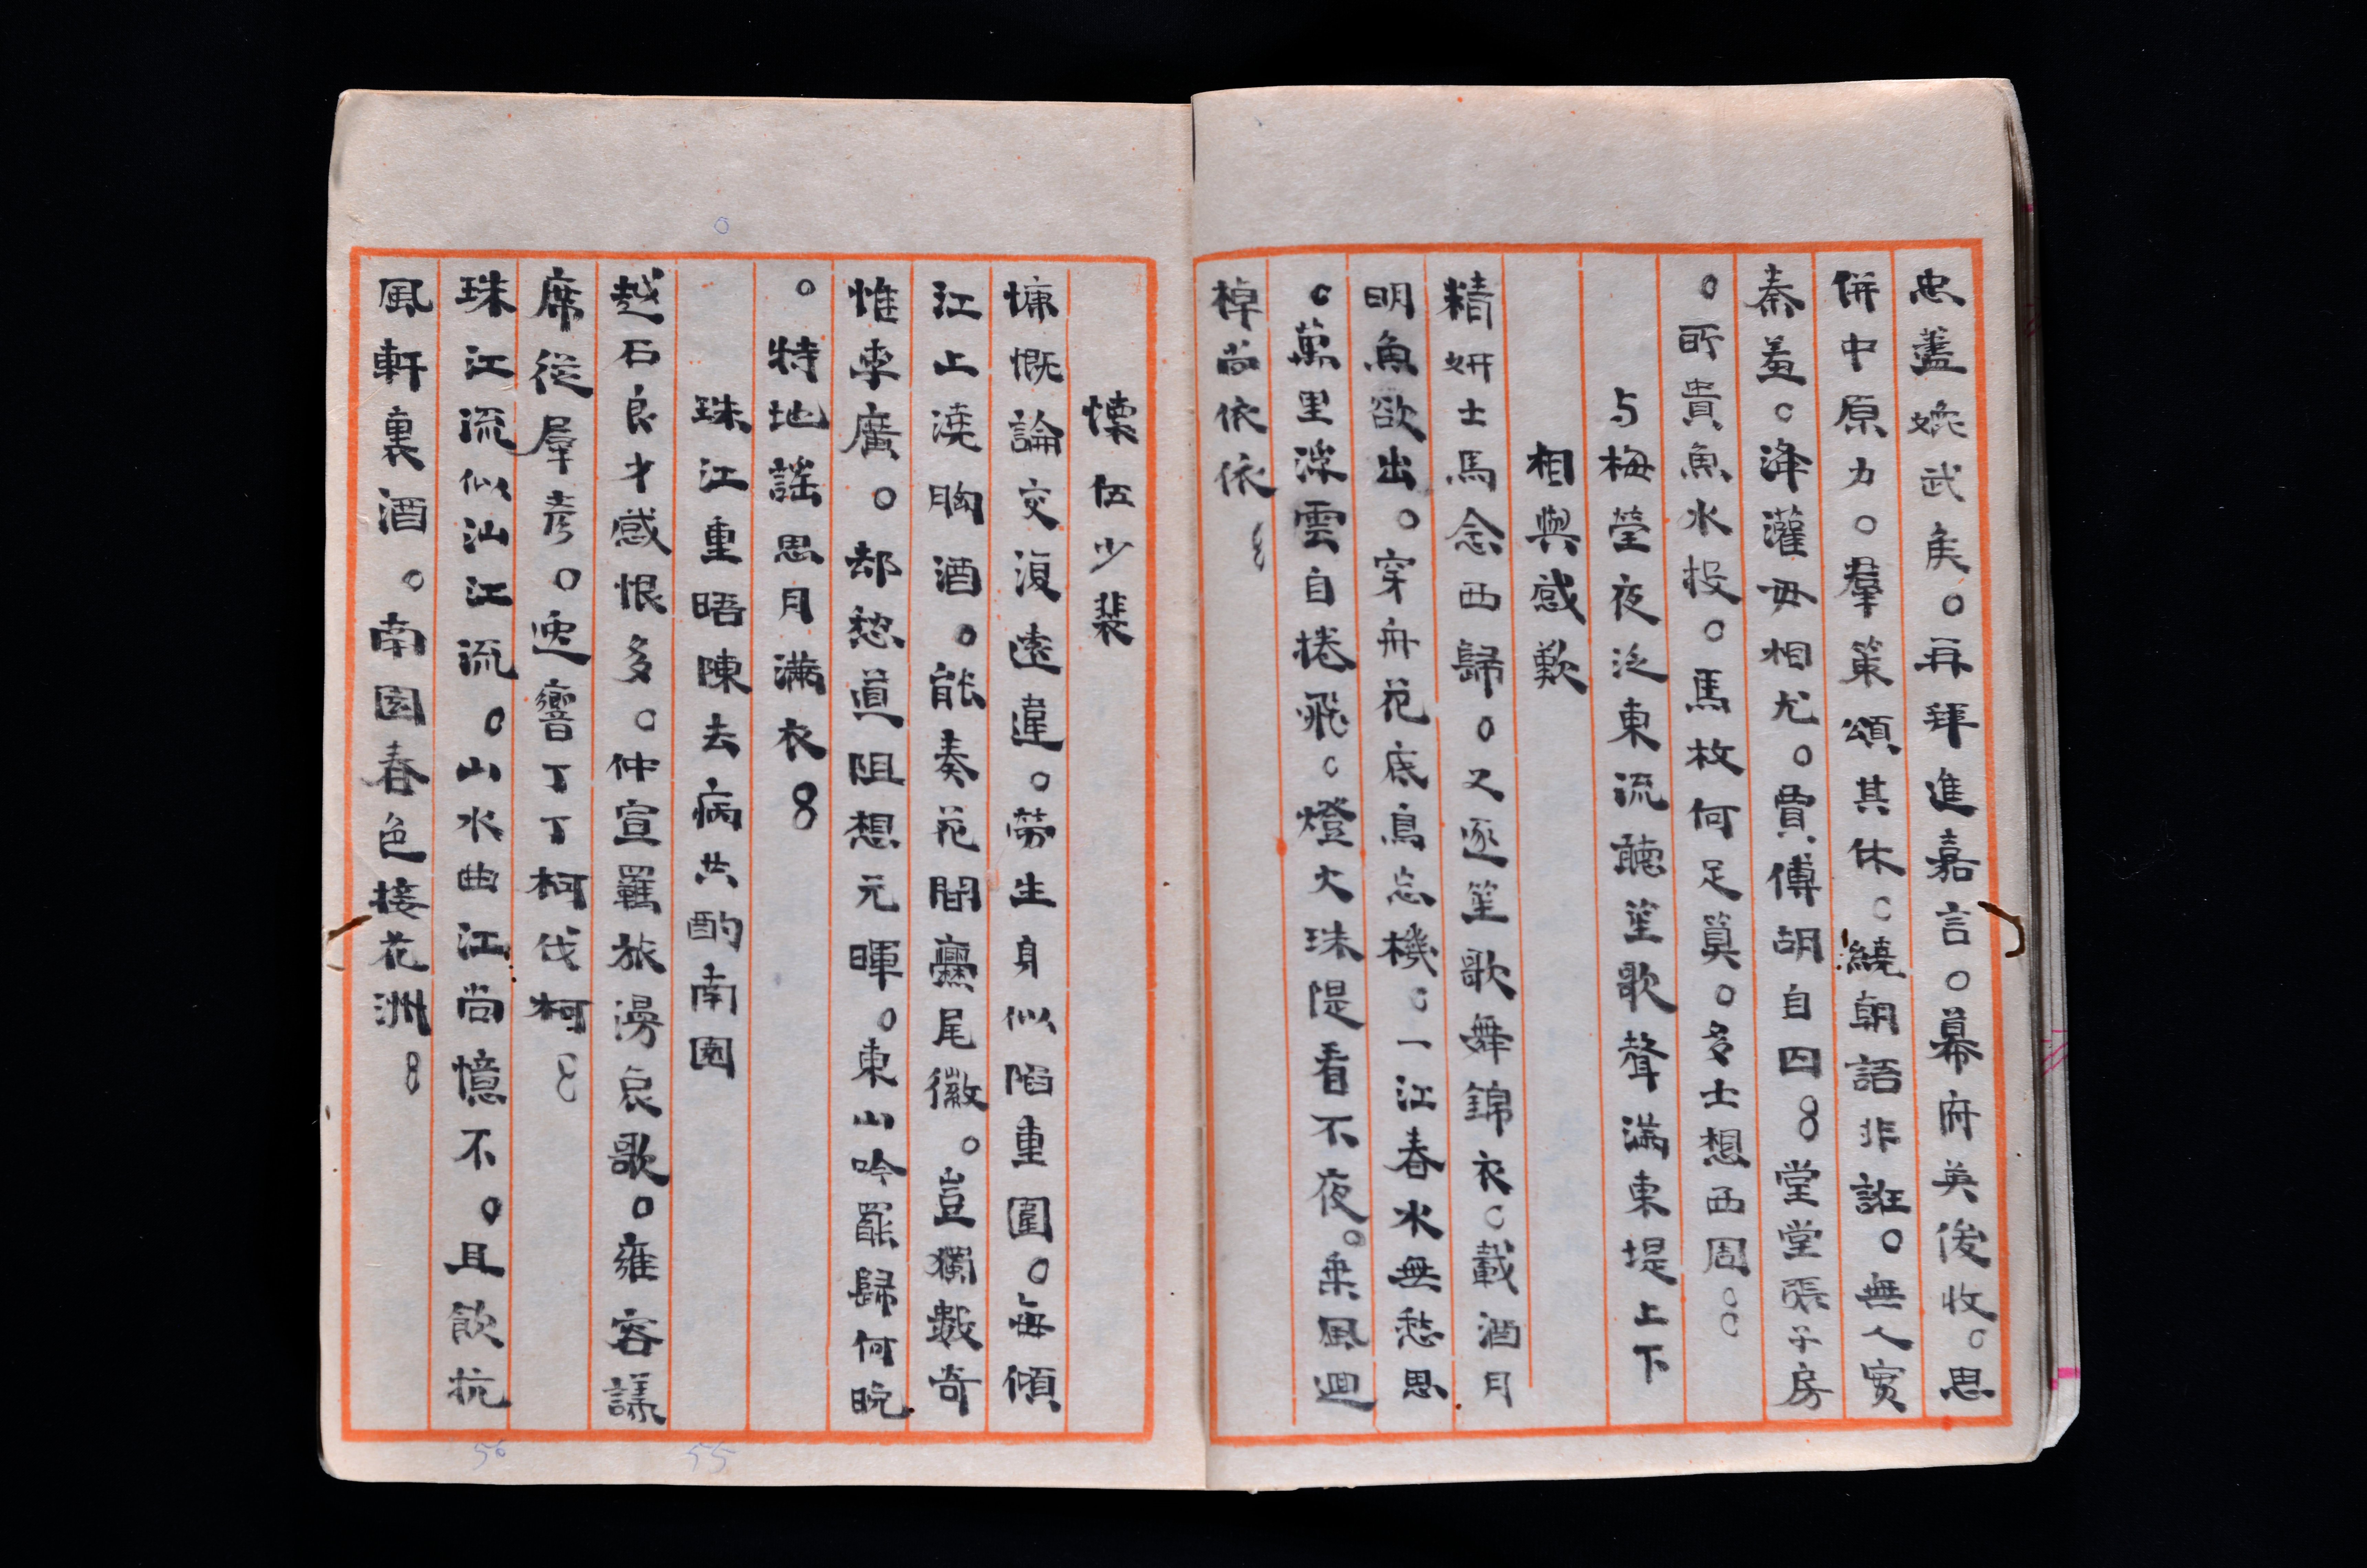 忠蓋媲武矦。再拜進嘉言。幕府英俊收。思
併中原力。羣策頌其休。繞朝語非誑。無人實
秦羞。絳灌毋相尤。賈傅胡自囚8堂堂張子房
。所貴魚水投。馬枚何足筭。多士想西周。。
与梅瑩夜泛東流聽笙歌聲滿東堤上下
相與感歎
精妍士馬念西歸。又逐笙歌舞錦衣。載酒月
明魚欲出。穿舟花底鳥忘機。一江春水無愁思
。萬里深雲自捲飛。燈火珠隄看不夜。乘風迴
棹尚依依8
懷伍少裴
慷慨論交復遠違。勞生身似陷重圍。每傾
江上澆胸酒。能奏花間爨尾徽。豈獨數奇
惟李廣。却愁道阻想元暉。東山吟罷歸何晚
。特地謠思月滿衣8
珠江重晤陳去病共酌南園
越石良才感恨多。仲宣羈旅漫哀歌。雍容議
席從羣彥。逸響丁丁柯伐柯8
珠江流似汕江流。山水曲江尚憶不。且飲抗
風軒裏酒。南園春色接花洲8
55
56